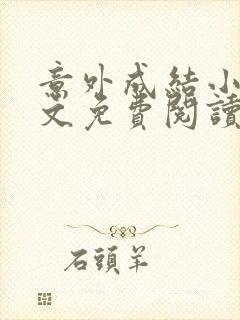 意外成結小
文免費閱讀
石頭羊